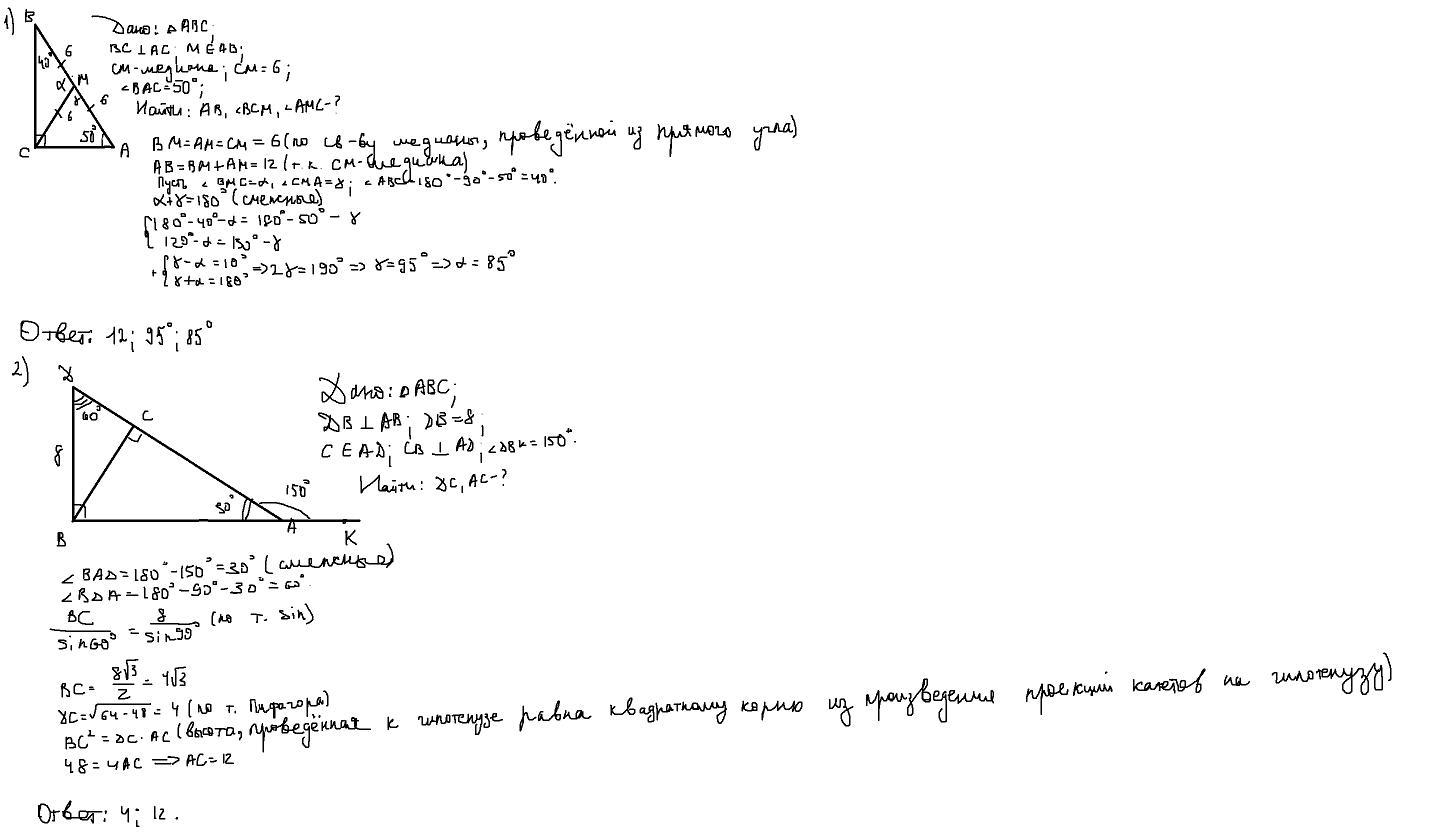 1)
B
40°
6
α
M
γ
6
6
50°
C
A
Дано: △ABC;
BC ⊥ AC; M ∈ AB;
CM-медиана; CM=6;
∠BAC=50°;
Найти: AB, ∠BCM, ∠AMC-?
BM=AM=CM=6 (по св-ву медианы, проведённой из прямого угла)
AB=BM+AM=12 (т.к. CM-медиана)
Пусть ∠BMC=α, ∠CMA=γ; ∠ABC=180°-90°-50°=40°.
α+γ=180° (смежные)
180°-40°-α=180°-50°-γ
120°-α=130°-γ
+ { γ-α=10°
γ+α=180° =>2γ=190°=> γ=95°=>α=85°
Ответ: 12; 95°; 85°
2)
D
60°
C
8
30°
150°
B
A
K
Дано: △ABC;
DB ⊥ AB; DB=8;
C ∈ AD; CB ⊥ AD; ∠DBK=150°.
Найти: DC, AC-?
∠BAD=180°-150°=30° (смежные)
∠BDA=180°-90°-30°=60°.
BC/sin60° = 8/sin90° (по т. sin)
BC= 8√3/2 = 4√3
DC=√64-48=4 (по т. Пифагора)
BC²=DC·AC (высота, проведённая к гипотенузе равна квадратному корню из произведения проекций катетов на гипотенузу)
48=4AC => AC=12
Ответ: 4; 12.